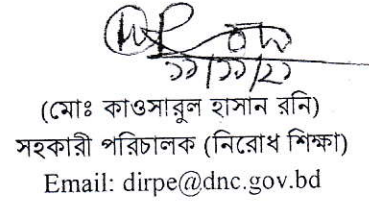 ২১/১১/২১
(মোঃ কাওসারুল হাসান রনি)
সহকারী পরিচালক (নিরোধ শিক্ষা)
Email: dirpe@dnc.gov.bd